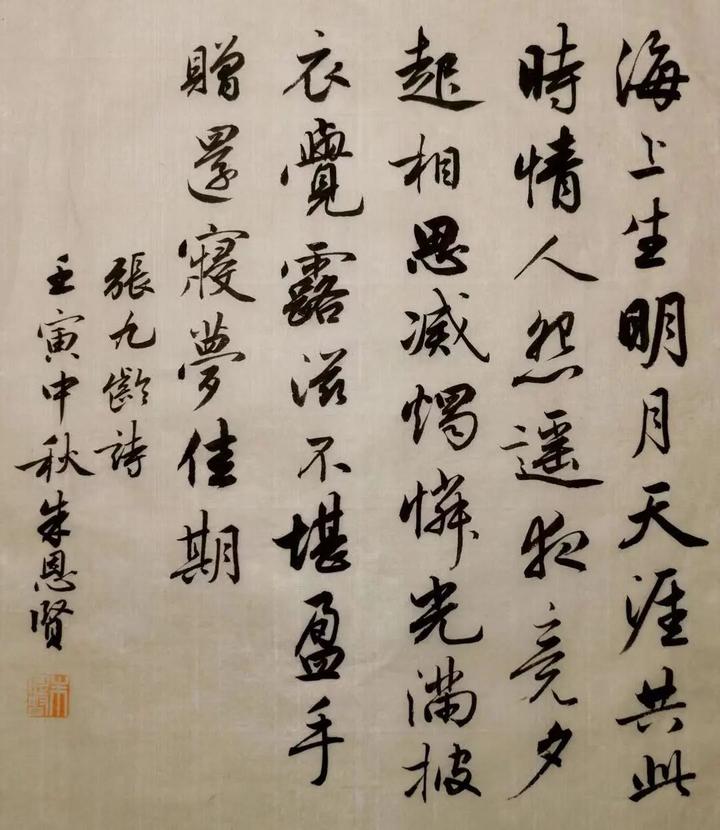 海上生明月天涯共此
時情人怨遥夜竟夕
起相思滅燭憐光滿披
衣覺露滋不堪盈手
贈還寢夢佳期
張九齡詩
壬寅中秋朱恩賢